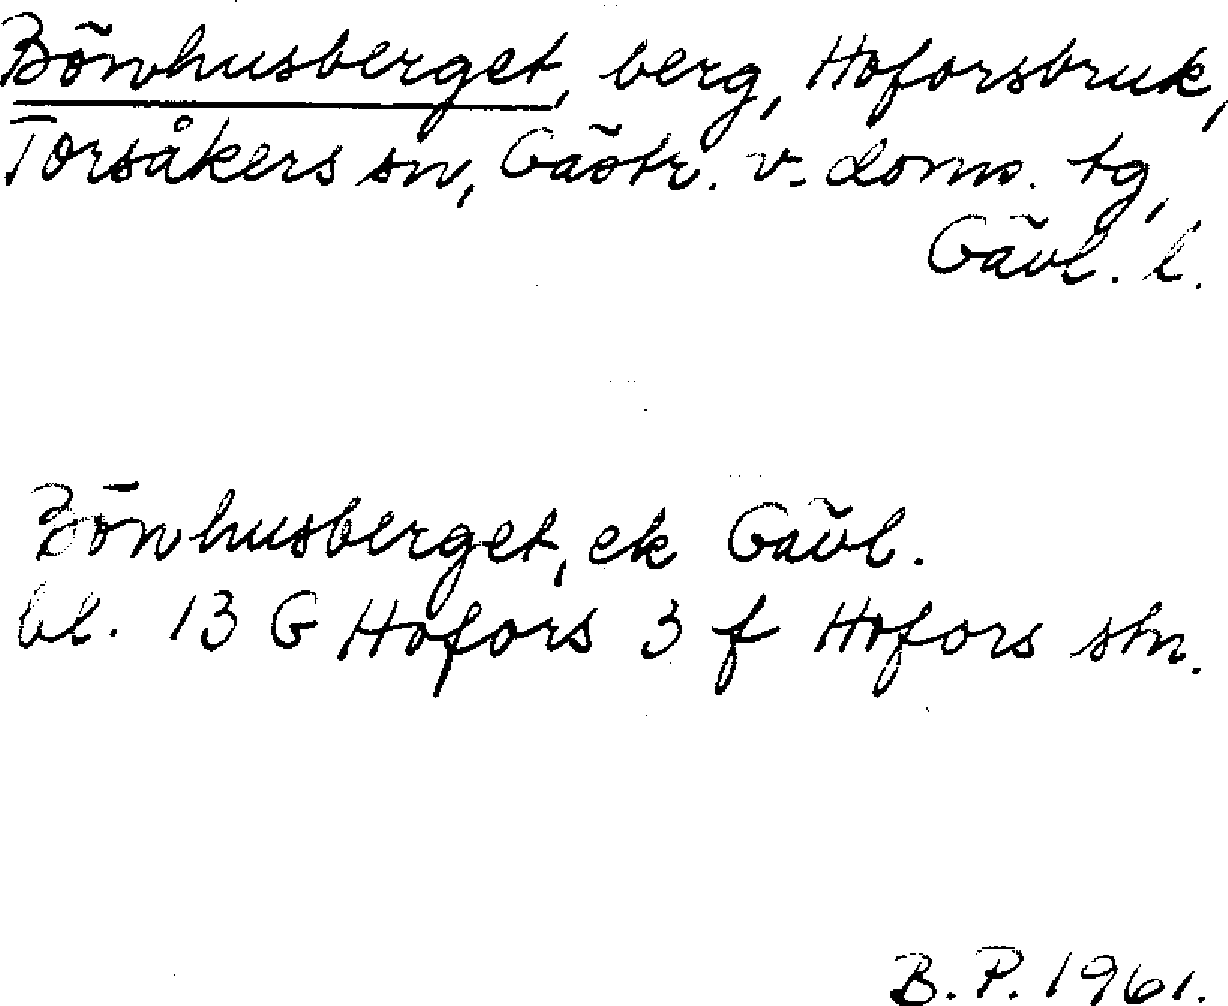 Bönhusberget, berg, Hoforsbruk,
Torsåkers sn, Gästr. v. doms. tg,
Gävl. l.
Bönhusberget, ek Gävl.
bl. 13 G Hofors 3 f Hofors stn.
B. P. 1961.